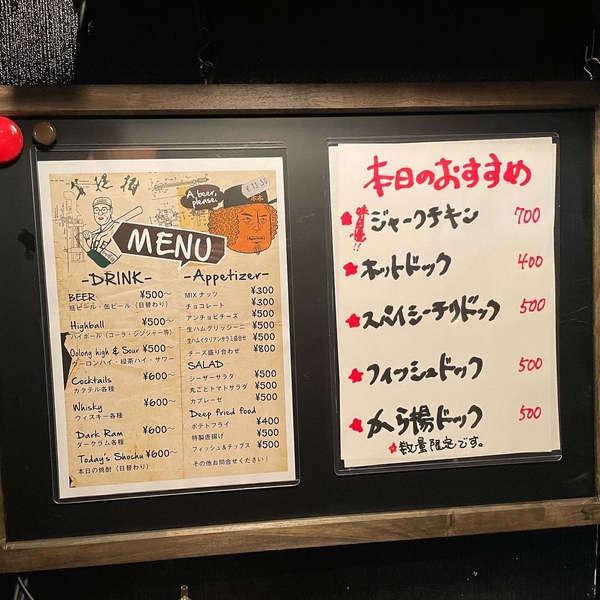 A beer,
please.
MENU
-DRINK-
BEER ¥500〜
瓶ビール・缶ビール（日替わり）
Highball ¥500〜
ハイボール（コーラ・ジンジャー等）
Oolong high & Sour ¥500〜
ウーロンハイ・緑茶ハイ・サワー
Cocktails ¥600〜
カクテル各種
Whisky ¥600〜
ウィスキー各種
Dark Ram ¥600〜
ダークラム各種
Today's Shochu ¥600〜
本日の焼酎（日替わり）
-Appetizer-
MIX ナッツ ¥300
チョコレート ¥300
アンチョビチーズ ¥500
生ハムグリッシーニ ¥500
生ハムイタリアンサラミ盛合せ ¥500
チーズ盛り合わせ ¥800
SALAD
シーザーサラダ ¥500
丸ごとトマトサラダ ¥500
カプレーゼ ¥500
Deep fried food
ポテトフライ ¥400
特製唐揚げ ¥500
フィッシュ＆チップス ¥500
その他お問合せください！
本日のおすすめ
ジャークチキン 700
ホットドック 400
スパイシーチリドック 500
フィッシュドック 500
から揚ドック 500
数量限定です。